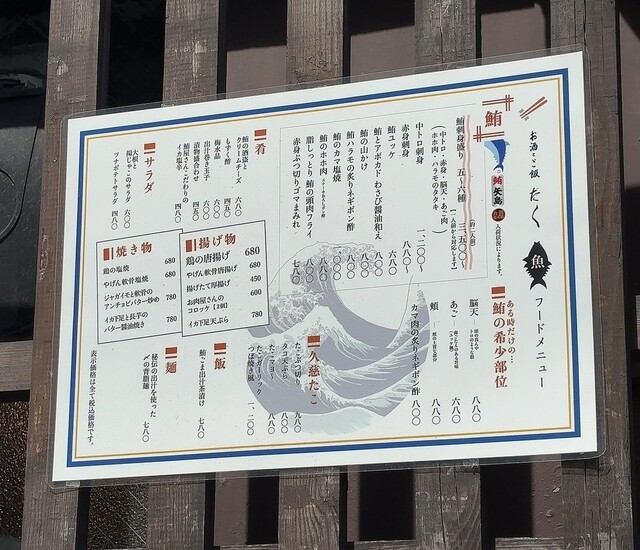 お酒とご飯 たく
魚
フードメニュー
鮪
鮪 矢島
入荷状況によります。
鮪刺身盛り 五・六種 (約二人前) 三、五〇〇〜
(中トロ・赤身・脳天・あご肉・ホホ肉・ハラモのタタキ (一人前から対応します)
中トロ刺身 一、二〇〇〜
赤身刺身 八八〇〜
鮪ユッケ 六八〇
鮪とアボカド わさび醤油和え
鮪の山かけ
鮪ハラモの炙りネギポン酢
鮪のカマ塩焼
鮪のホホ肉
脂しっとり 鮪の頭肉フライ 八八〇
赤身ぶつ切りゴマまみれ 七八〇
ある時だけの…
鮪の希少部位
脳天 八八〇
あご 六八〇
頬 八八〇
カマ肉の炙りネギポン酢 八〇〇
肴
鮪の酒盗とクリームチーズ 六八〇
もずく酢 四五〇
梅水晶
出汁巻き玉子 六〇〇
漬物盛合わせ 四五〇
鮪屋さんこだわりのイカ塩辛 四八〇
サラダ
大根と揚じゃこのサラダ 六〇〇
ツナポテトサラダ 四八〇
揚げ物
鶏の唐揚げ 680
やげん軟骨唐揚げ 680
揚げたて厚揚げ 450
お肉屋さんのコロッケ【2個】 600
イカ下足天ぷら 780
焼き物
鶏の塩焼 680
やげん軟骨塩焼 680
ジャガイモと軟骨のアンチョビバター炒め 780
イカ下足と長芋のバター醤油焼き 780
久慈たこ
たこぶつ切り 九八〇
タコ天ぷら 八八〇
たこマヨ 七八〇
たこガーリックつぼ焼き風 一、二〇〇
飯
鮪ごま出汁茶漬け 七八〇
麺
秘伝の出汁を使った〆の背脂麺 七八〇
表示価格は全て税込価格です。